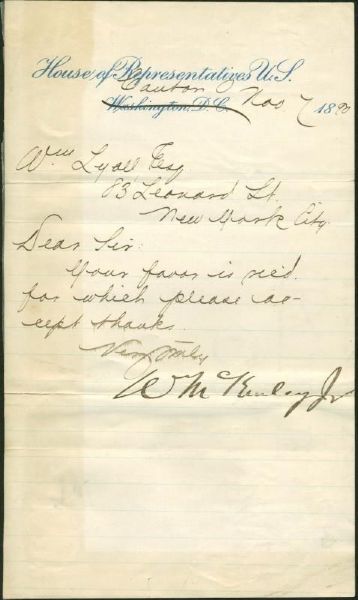 House of Representatives U.S.
Canton
Washington, D.C. Nov 7 1890
Wm Lyall, Esq
83 Leonard St.
New York City
Dear Sir:
Your favor is rec'd.
for which please ac-
cept thanks.
Very truly
W McKinley Jr